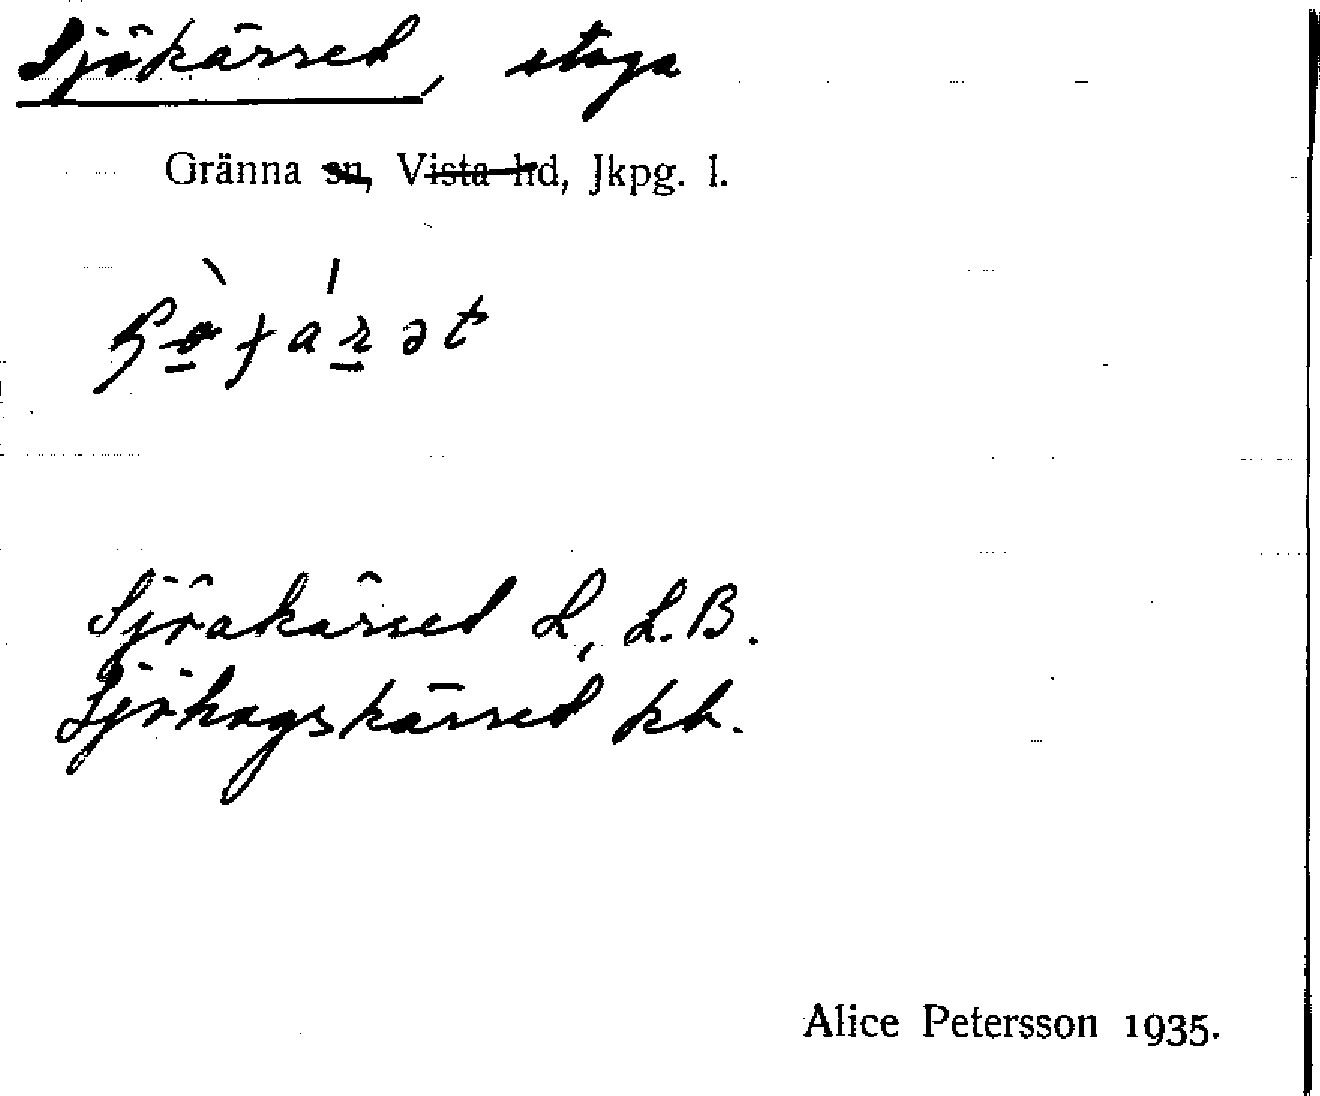 Sjökärret, stuga
Gränna sn, Vista hd, Jkpg. l.
Sjöakärret L, L.B.
Sjöhagskärret kb.
Alice Petersson 1935.